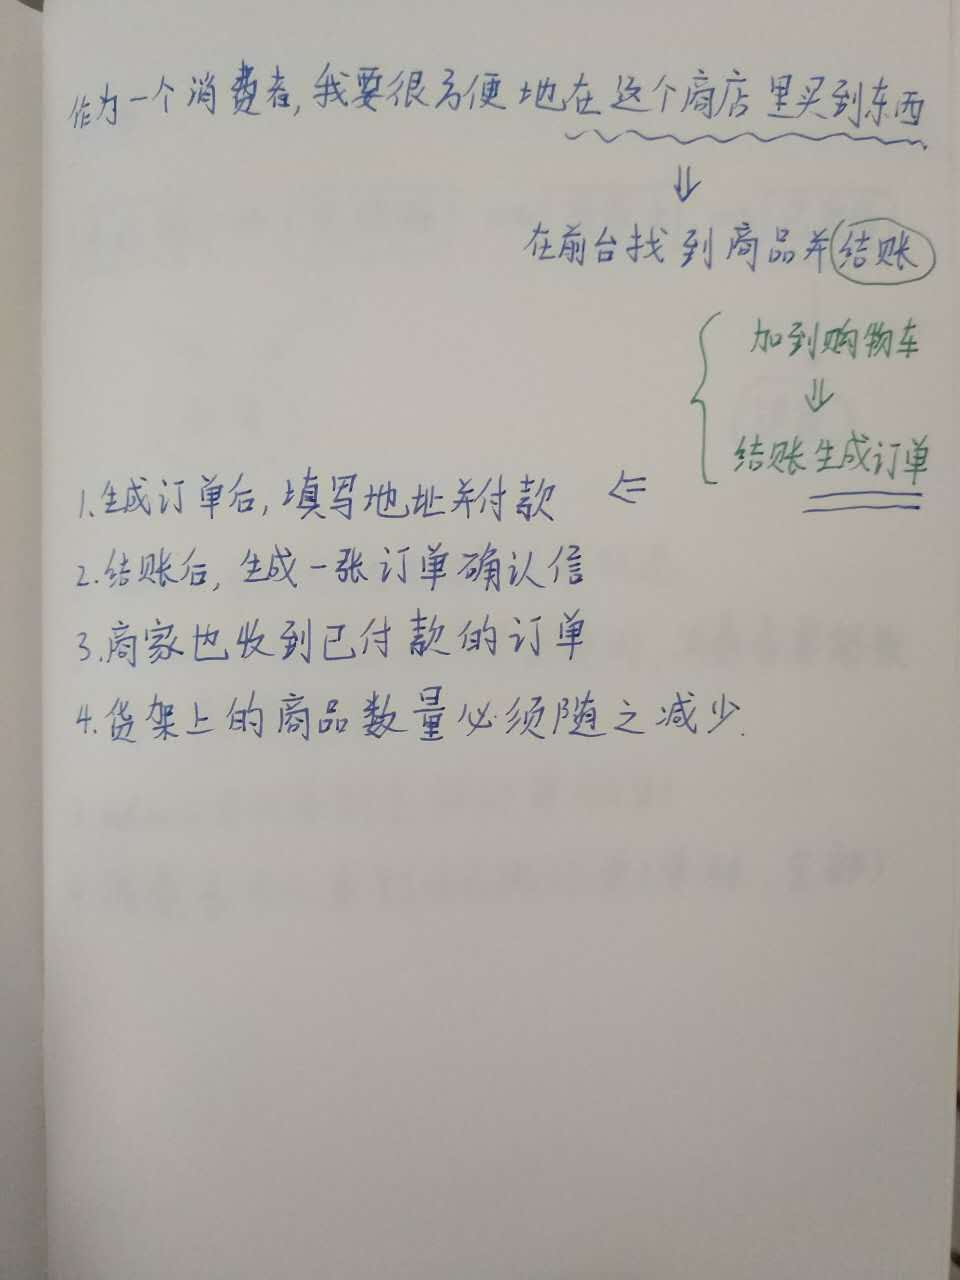 作为一个消费者,我要很方便地在这个商店里买到东西
⇓
在前台找到商品并结账
加到购物车
⇓
结账生成订单
⇐
1.生成订单后,填写地址并付款
2.结账后,生成一张订单确认信
3.商家也收到已付款的订单
4.货架上的商品数量必须随之减少.